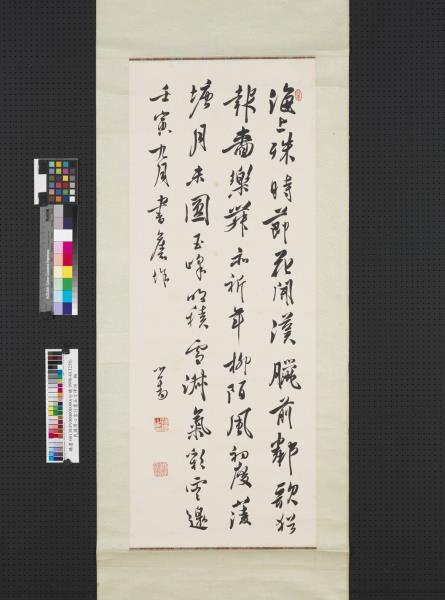 海上殊時節花開漢臘前鄰歌猶
報嗇樂舞亦祈年柳陌風初菱
塘月未圓玉峰明積雪淑氣彩雲邊
壬寅九月書舊作
心畬